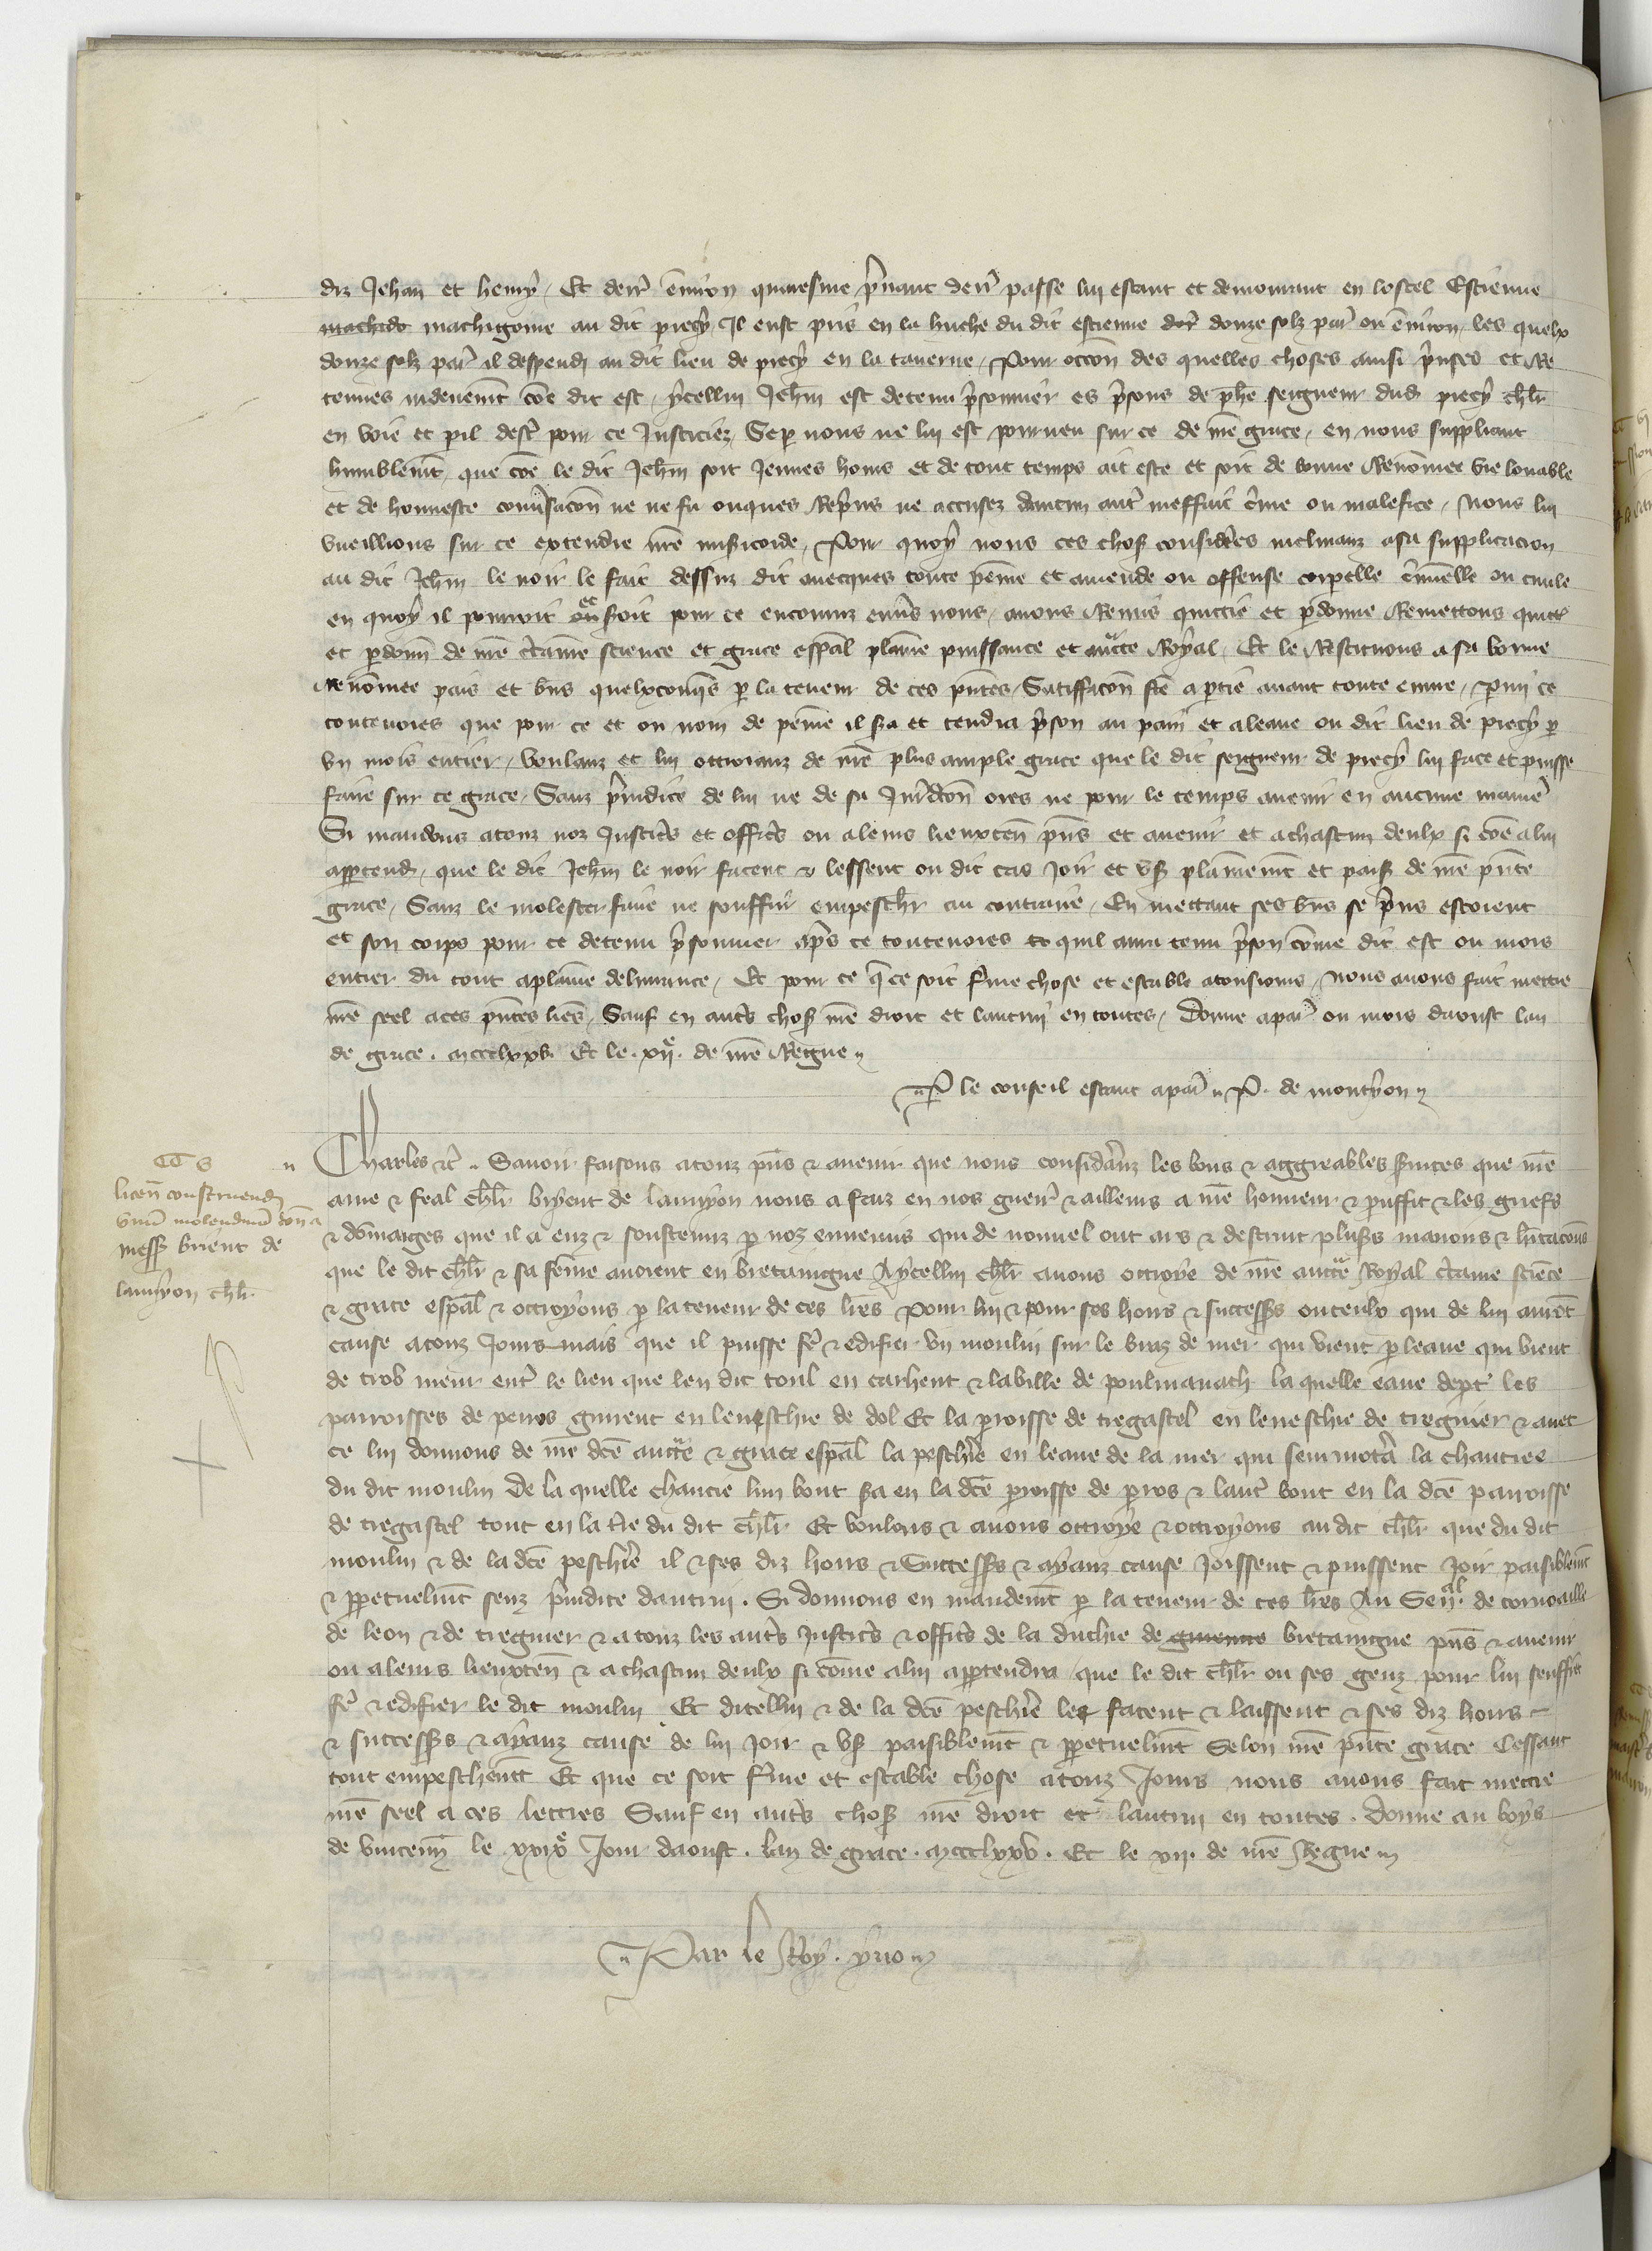 diz Jehan et henry / Et derr̃ enuiron quaresme prenant derr̃ passe lui estant et demourant en lostel Estienne
machigome au dit precy / Il eust pris en la huche du dit estienne douze solz par̃ ou enuiron / les quelx
douze solz par̃ il despendi au dit lieu de precy en la tauerne / Pour occon̄ des quelles choses ainsi prinses et Re
tenues indeuemēt cōe dit est / ycellui Jehm̃ est detenu prisonnier es prisons de seigneur dud precy chl̄r
en voie et peril destr̃ pour ce Justiciez / Se p nous ne lui est pourueu sur ce de nr̄e grace / en nous suppliant
humblemt̄ / que cōe le dit Jehm̃ soit Jeunes homs et de tout temps ait este et soit de bonne Renōmee vie louable
et de honneste conũsacōn ne ne fu onques Repris ne accusez daucun autr̃ meffait c̃me ou malefice / Nous lui
vueillions sur ce extendre nr̄e misicorde / Pour quoy nous ces chos̄ considerees inclinanz a sa supplicacion
au dit Jehm̃ le noir le fait dessuz dit auecques toute peine et amende ou offense corpelle c̃minelle ou ciuile
en quoy il pourroit soit pour ce encouruz enũs nous / auons Remis quittie et p̱donne Remettons quitt̃
et p̱donn̄ de nr̄e c̃tainne science et grace esp̄al plain̄e puissance et auctt̃e Royal / Et le Restituons a sa bonne
Renōmee pais et biens quelxconq̄s p la teneur de ces pn̄tes / Satiffaccōn fc̄e a p̱tie auant toute euure / Parmi ce
toutevoies que pour ce et ou nom de peine il s̃a et tendra p̱son au pain et a leaue ou dit lieu de precy p
vn mois entier / voulanz et lui ottroianz de nr̄e plus ample grace que le dit seigneur de precy lui face et puisse
faire sur ce grace / Sanz p̱iudice de lui ne de sa Jur̃dicōn ores ne pour le temps auenir en aucune manie᷑
Si mandons a touz noz Justic̃s et offic̃s ou a leurs lieuxten̄ pn̄s et auenir et a chascun deulx si cōe a lui
app̱tend̃ / que le dit Jehm̃ le noir facent & lessent ou dit cas Joir et us̃ plainnemt̄ et paisib̃ de nr̄e pn̄te
grace / Sanz le molester faire ne souffrir empesch̃r au contraire / En mettant ses biens se p̱ns estoient
et son corps pour ce detenu p̱sonnier ap̱s ce toutevoies quil aura tenu p̱son cōme dit est ou mois
entier du tout a plaine deliurance / Et pour ce q̄ ce soit ferme chose et estable a tousiours / Nous auons fait mettre
nr̄e seel a ces pn̄tes lr̄es / Sauf en autr̃s chos̄ nr̄e droit et lautrui en toutes / Donne a par̃ ou mois daoust lan
de grace . mccclxxv. Et le . xije. de nr̄e Regne
P le conseil estant a par̃ P. de montyon
Charles &c̃ . Sauoir faisons a touz pn̄s & auenir que nous considerãnz les bons & aggreables s̃uices que nr̄e
ame & feal chl̄r bryent de lannyon nous a faiz en nos guerr̃ & ailleurs a nr̄e honneur & prouffit & les griefs
& dōmaiges que il a euz & soustenuz p noz ennemis qui de nouuel ont ars & destruit plus̃s manoirs & hitacōns
que le dit chl̄r & sa fem̄e auoient en bretaingne A ycellui chl̄r auons ottroye de nr̄e auctt̃e Royal c̃taine sciēce
& grace esp̄al & ottroyons p la teneur de ces lr̄es pour lui & pour ses hoirs & success̃s ou ceulx qui de lui aurōt
cause a touz Jours mais que il puisse fe᷑ & edifier vn moulin sur le braz de mer qui vient p leaue qui vient
de trob meur entr̃ le lieu que len dit toul en carhent & la ville de poulmanach la quelle eaue dept̃ les
parroisses de penros guirent en leueschie de dol Et la p̱roisse de tregastel en leueschie de treguier & auec
ce lui donnons de nr̄e dc̄e auctt̃e & grace esp̄al la pescherie en leaue de la mer qui seurmotr̃a la chaucee
du dit moulin De la quelle chaucie lun bout s̃a en la dc̄e p̱roisse de p̱ros & lautr̃ bout en la dc̄e parroisse
de tregastel tout en la tr̃e du dit chl̄r Et voulons & auons ottroye & ottroyons au dit chl̄r que du dit
moulin & de la dc̄e pescherie il & ses diz hoirs & Success̃s & ayanz cause Joissent & puissent Joir paisiblemt̄
& pp̱etuelmt̄ senz p̱iudice dautrui . Si donnons en mandemt̄ p la teneur de ces lr̄es Au Sen̄al de cornoaille
de leon & de treguier & a touz les autr̃s Justic̃s & offic̃s de la duchie de guienne bretaingne pn̄s & auenir
ou a leurs lieuxten̄ & a chascun deulx si cōme a lui app̱tendra que le dit chl̄r ou ses genz pour lui seuffrēt
fe᷑ & edifier le dit moulin Et dicellui & de la dc̄e pescherie les facent & laissent & ses diz hoirs
& success̃s & ayanz cause de lui Joir & us̃ paisiblemt̄ & pp̱etuelmt̄ Selon nr̄e pn̄te grace Cessant
tout empeschemt̄ Et que ce soit ferme et estable chose a touz Jours nous auons fait mettre
nr̄e seel a ces lettres Sauf en autr̃s chos̄ nr̄e droit et lautrui en toutes . Donne au boys
de vincenn̄ le xxixe Jour daoust . lan de grace . mccclxxv . Et le xij. de nr̄e Regne
Par le Roy . yuo
licen̄ construendi
vnū molendinū don̄a
mess̃ brient de
lannyon chl̄r